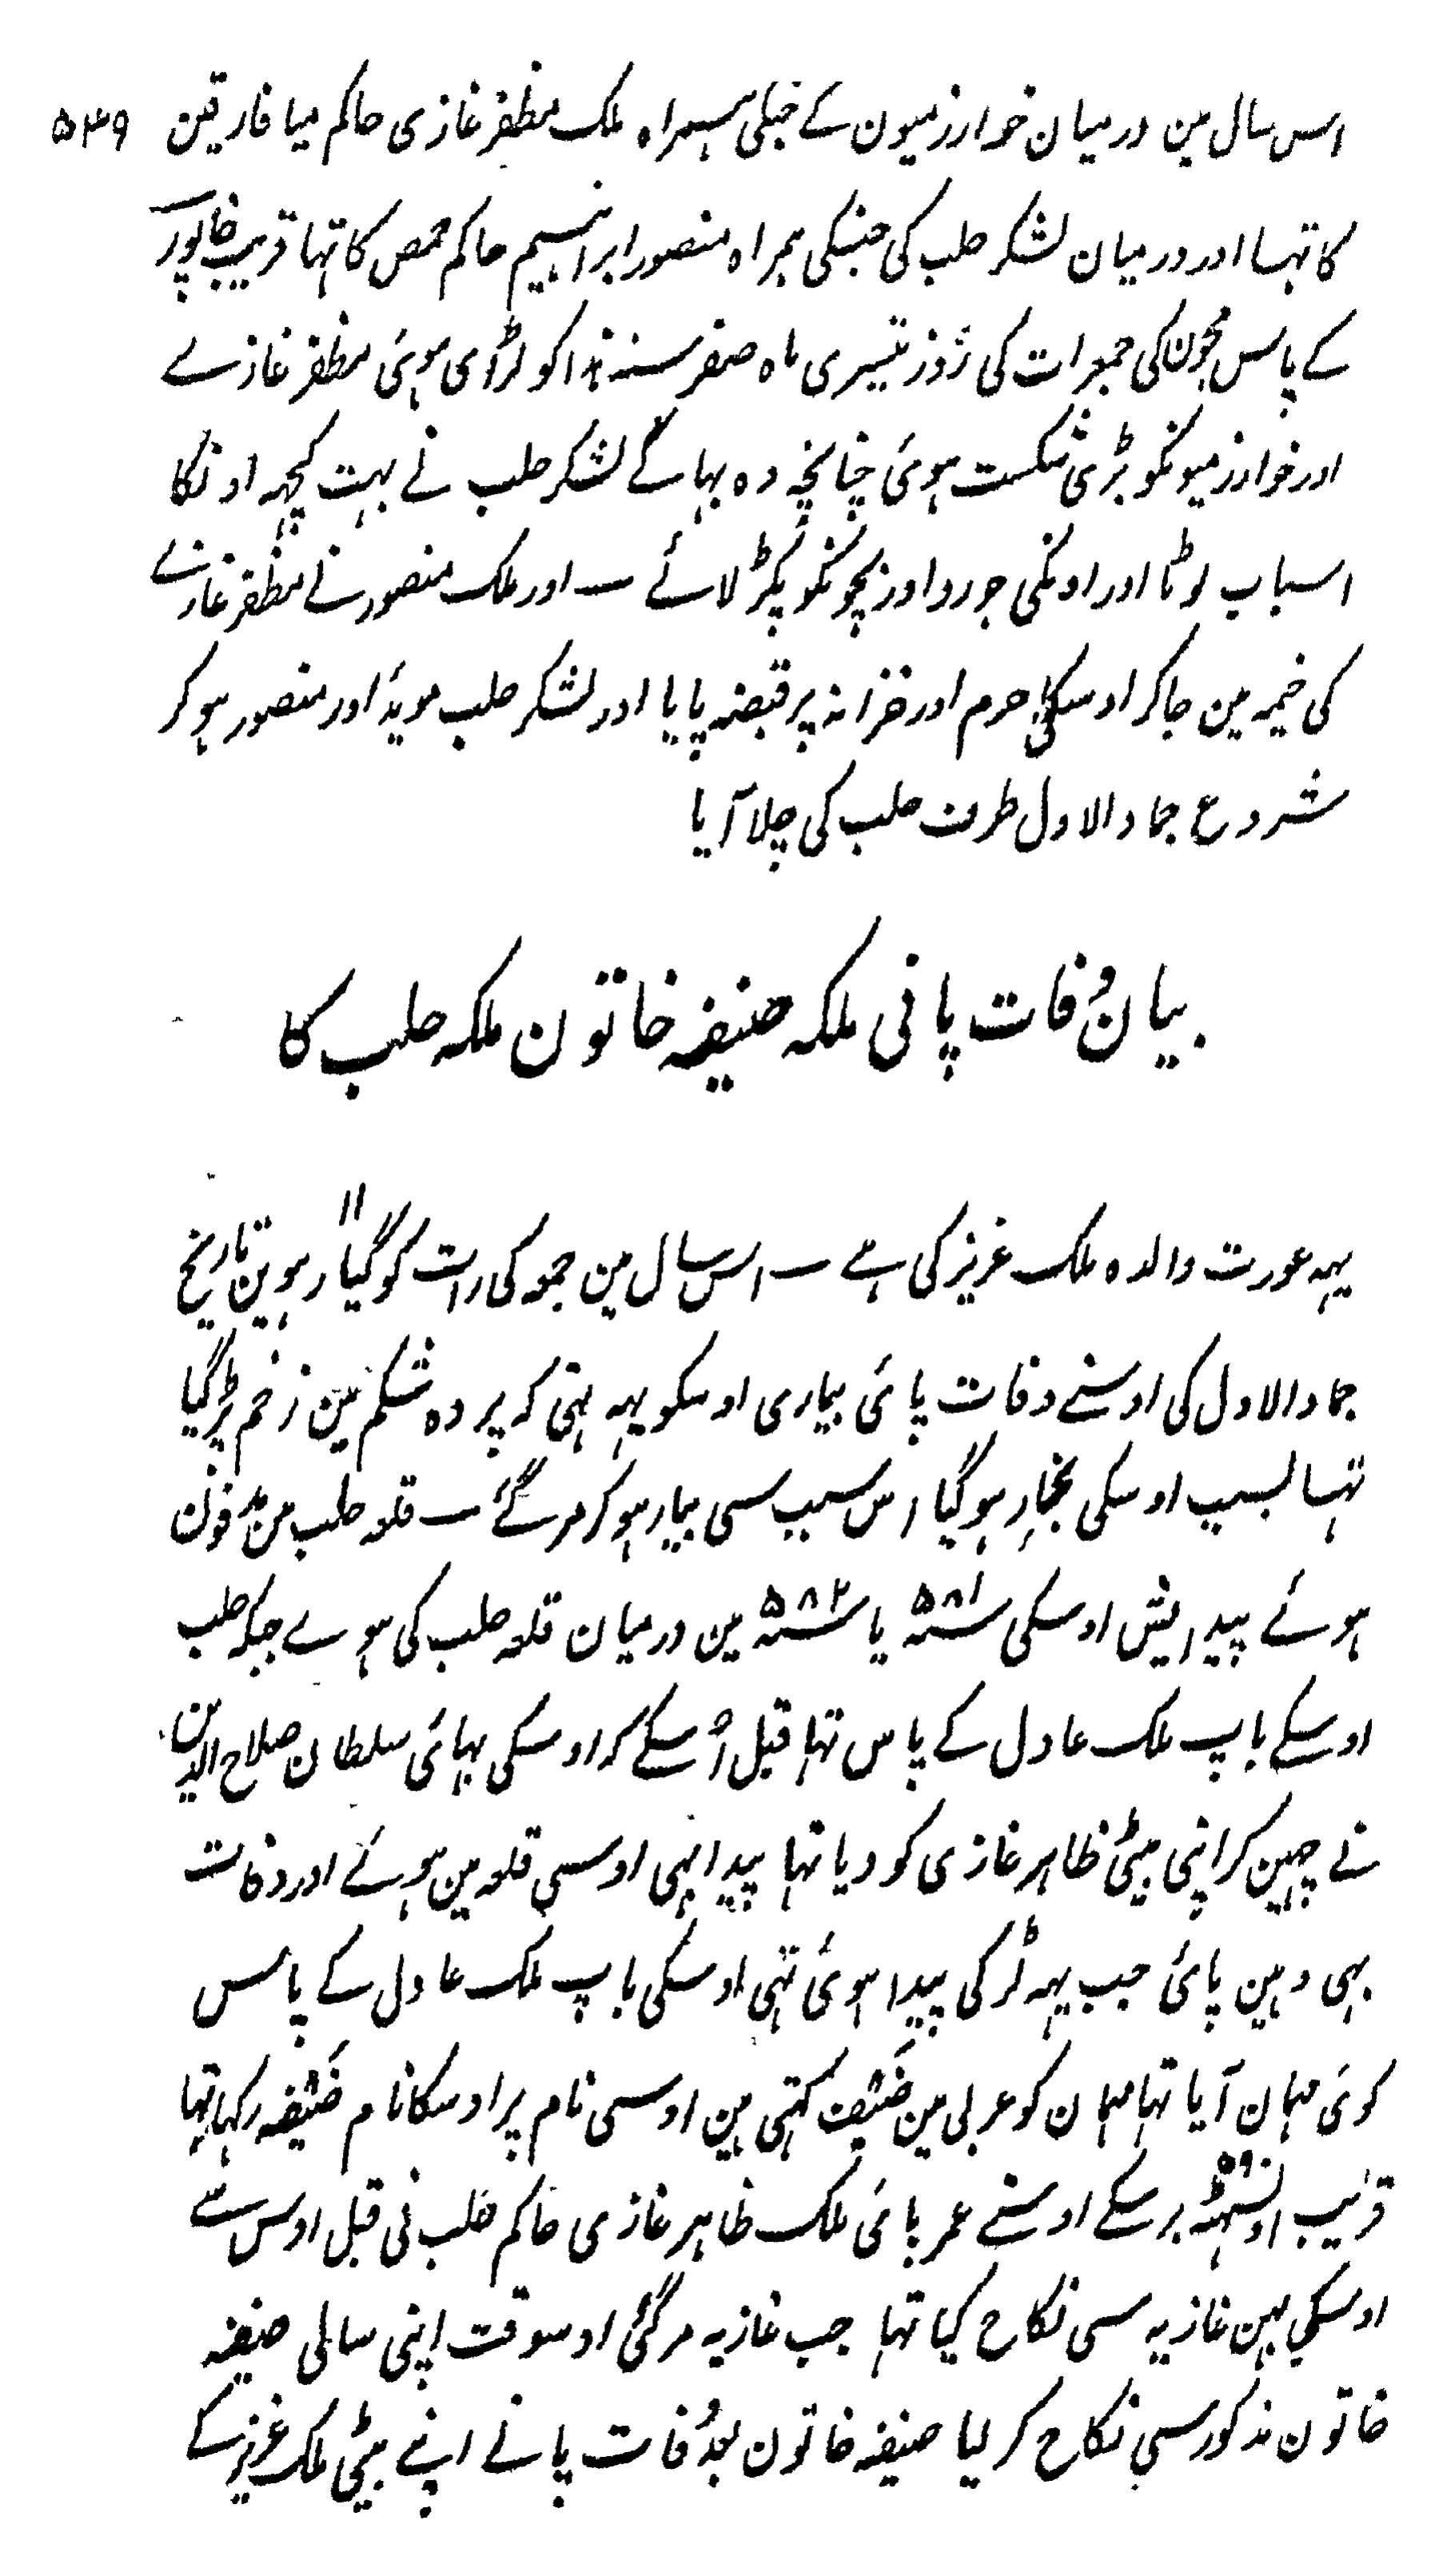 اس سال مین درمیان خوارزمیون کے جنکی ہمراہ ملک مظفر غازی حاکم میافارقین ۵۴۹
کا تہا اور درمیان لشکر حلب کی جنکی ہمراہ منصور ابراہیم حاکم حمص کا تہا قریب خابور
کے پاس مجون کی جمعرات کی روز تیسری ماہ صفر سنہ ہذا کو لڑائی ہوئی مظفر غازے
اور خوارزمیونکو بڑی شکست ہوئی چنانچہ وہ بہاگے لشکر حلب نے بہت کچہہ اونکا
اسباب لوٹا اور اونکی جورو اور بچونکو پکڑ لائے ــ اور ملک منصور نے مظفر غازے
کی خیمہ مین جاکر اوسکی حرم اور خزانہ پر قبضہ پایا اور لشکر حلب موید اور منصور ہو کر
شروع جماد الاول طرف حلب کی چلا آیا
بیان وفات پانی ملکہ صنیفہ خاتون ملکہ حلب کا
یہہ عورت والدہ ملک عزیز کی ہے ــ اس سال مین جمعہ کی رات کو گیارہوین ۱۱ تاریخ
جماد الاول کی اوسنے وفات پائی بیماری اوسکو یہہ تہی کہ پردہ شکم مین زخم پڑگیا
تہا بسبب اوسکی بخار ہوگیا اس سبب سی بیمار ہو کر مر گئے ــ قلعہ حلب مین مدفون
ہوئے پیدایش اوسکی سنہ ۵۸۱ یا سنہ ۵۸۲ مین درمیان قلعہ حلب کی ہوے جبکہ حلب
اوسکے باپ ملک عادل کے پاس تہا قبل اسکے کہ اوسکی بہائی سلطان صلاح الدین
نے چہین کر اپنی بیٹی ظاہر غازی کو دیا تہا پیدا بہی اوسی قلعہ مین ہوئے اور وفات
بہی وہین پائی جب یہہ لڑکی پیدا ہوئی تہی اوسکی باپ ملک عادل کے پاس
کوئی مہمان آیا تہا مہمان کو عربی مین ضَیف کہتی ہین اوسی نام پر اوسکا نام ضَیفہ رکہا تہا
قریب اونسہٹہ ۵۹ برسکے اوسنے عمر پائی ملک ظاہر غازی حاکم حلب نی قبل اوس سے
اوسکی بہن غازیہ سی نکاح کیا تہا جب غازیہ مرگئی اوسوقت اپنی سالی صنیفہ
خاتون مذکور سی نکاح کر لیا صنیفہ خاتون بعد وفات پانے اپنے بیٹی ملک عزیز کے